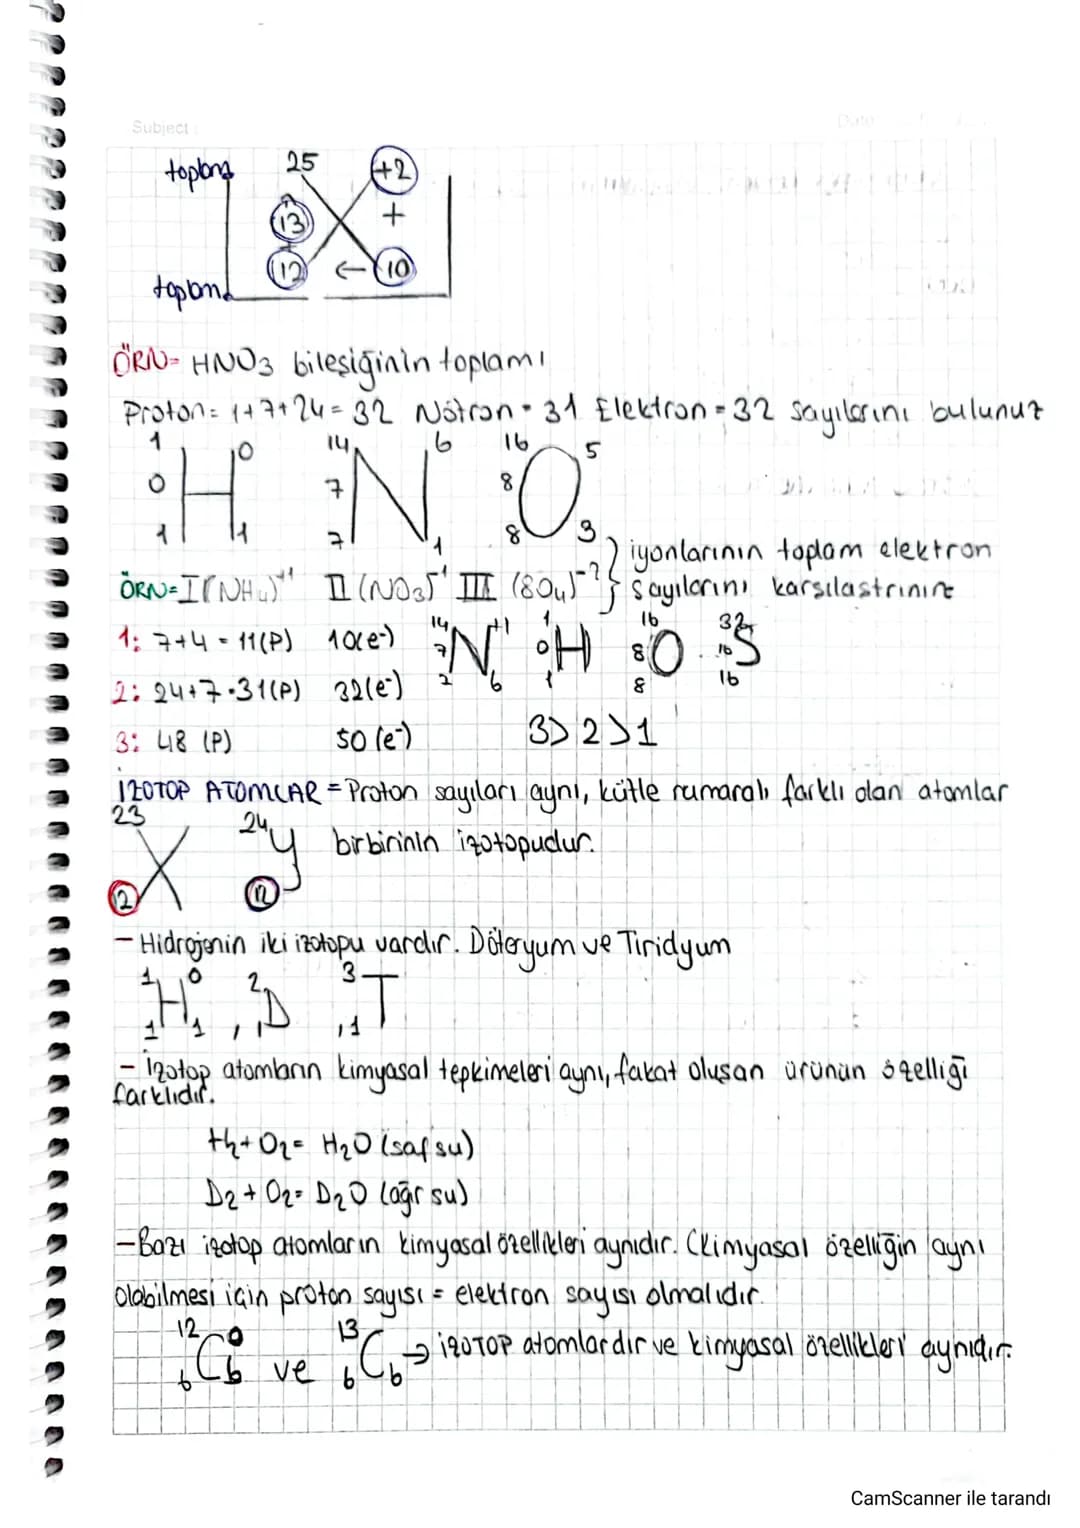 Subject :
Date
toplanır 25 +2
13 +
12 ← 10
toplanır
ÖRN= HNO3 bileşiğinin toplamı
Proton= 1+7+24=32 Nötron=31 Elektron=32 sayılarını bulunuz
1 0 14 6 16 5
0 H 7 N 8 O
1 1 7 1 8 3
iyonlarının toplam elektron
ÖRN=I(NH4)+1 II(NO3)-1 III (SO4)-2 } sayılarını karşılaştırınız
1: 7+4=11(P) 10(e-) 14 7 N +1 1 0 H 16 8 O 32 16 S
2: 24+7=31(P) 32(e-) 7 6 1 8 16
3: 48 (P) 50(e-) 3>2>1
İZOTOP ATOMLAR = Proton sayıları aynı, kütle numaralı farklı olan atomlar
23 X 24 y birbirinin izotopudur.
12 12
- Hidrojenin iki izotopu vardır. Döteryum ve Tiridyum
1 0 2 3
H , D , T
1 1 1 1
- İzotop atomların kimyasal tepkimeleri aynı, fakat oluşan ürünün özelliği
farklıdır.
H2+O2= H2O (saf su)
D2+O2= D2O (ağır su)
-Bazı izotop atomların kimyasal özellikleri aynıdır. (Kimyasal özelliğin aynı
olabilmesi için proton sayısı = elektron sayısı olmalıdır.
12 0 13
6 C 6 ve 6 C 6 → İZOTOP atomlardır ve kimyasal özellikleri aynıdır.
CamScanner ile tarandı